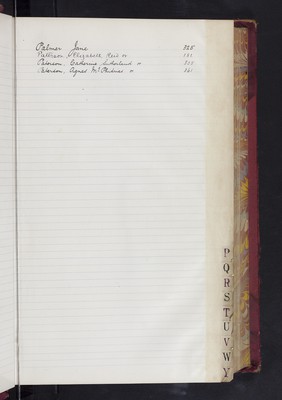 Palmer Jane 325
Patterson Elizabeth Reid or
Paterson Catherine Sutherland or
Paterson Agnes or
P
Q
R
S
T
U
V
W
Y